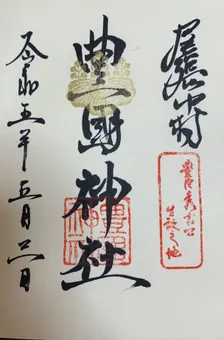 尾張中村
豊臣秀吉公
生誕之地
豊國神社
令和五年五月